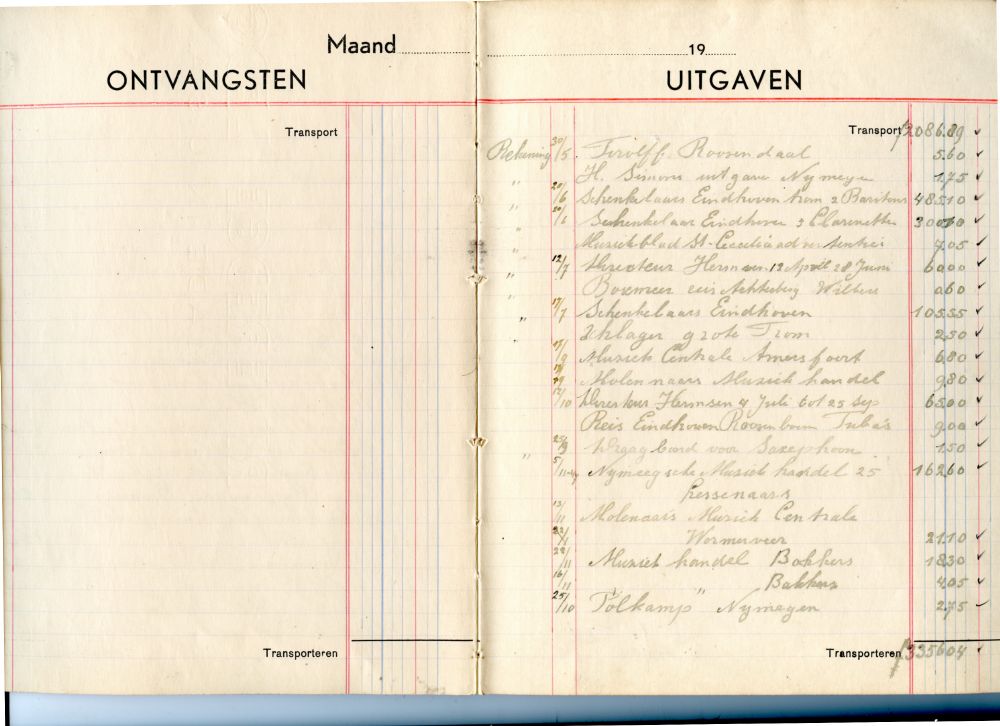 Maand
ONTVANGSTEN
Transport
Transporteren
19
UITGAVEN
Transport f 2086.89 ✓
Rekening 30/5 Tirolff Roosendaal 5.60 ✓
H. Simons uitgave Nymegen 1.75 ✓
" 20/6 Schenkelaars Eindhoven trom 2 Baritons 485.10 ✓
" Schenkelaar Eindhoven 3 Clarinetten 300.60 ✓
" Muziekblad St-Cecilia advertentie 7.05 ✓
" 12/7 Directeur Hermsen 12 April 28 Juni 60.00 ✓
" Boxmeer reis Achterberg Willems 0.60 ✓
" 17/7 Schenkelaars Eindhoven 105.55 ✓
2 klager grote Trom 2.50 ✓
17/9 Muziek Centrale Amersfoort 6.80 ✓
Molennaars Muziek handel 9.80 ✓
12/10 Directeur Hermsen 4 Juli tot 25 Sep 65.00 ✓
Reis Eindhoven Roosenboom Tuba's 9.00 ✓
" 25/9 Draag band voor Saxephoon 1.50 ✓
5/11 Nymeegsche Muziek handel 25 162.60 ✓
Lessenaars
13/11 Molenaars Muziek Centrale
Wormerveer 21.10 ✓
22/11 Muziek handel Bakkers 18.30 ✓
16/11 " Bakkers 4.05 ✓
25/10 Polkamp Nymegen 2.75 ✓
Transporteren f 3356.04 ✓